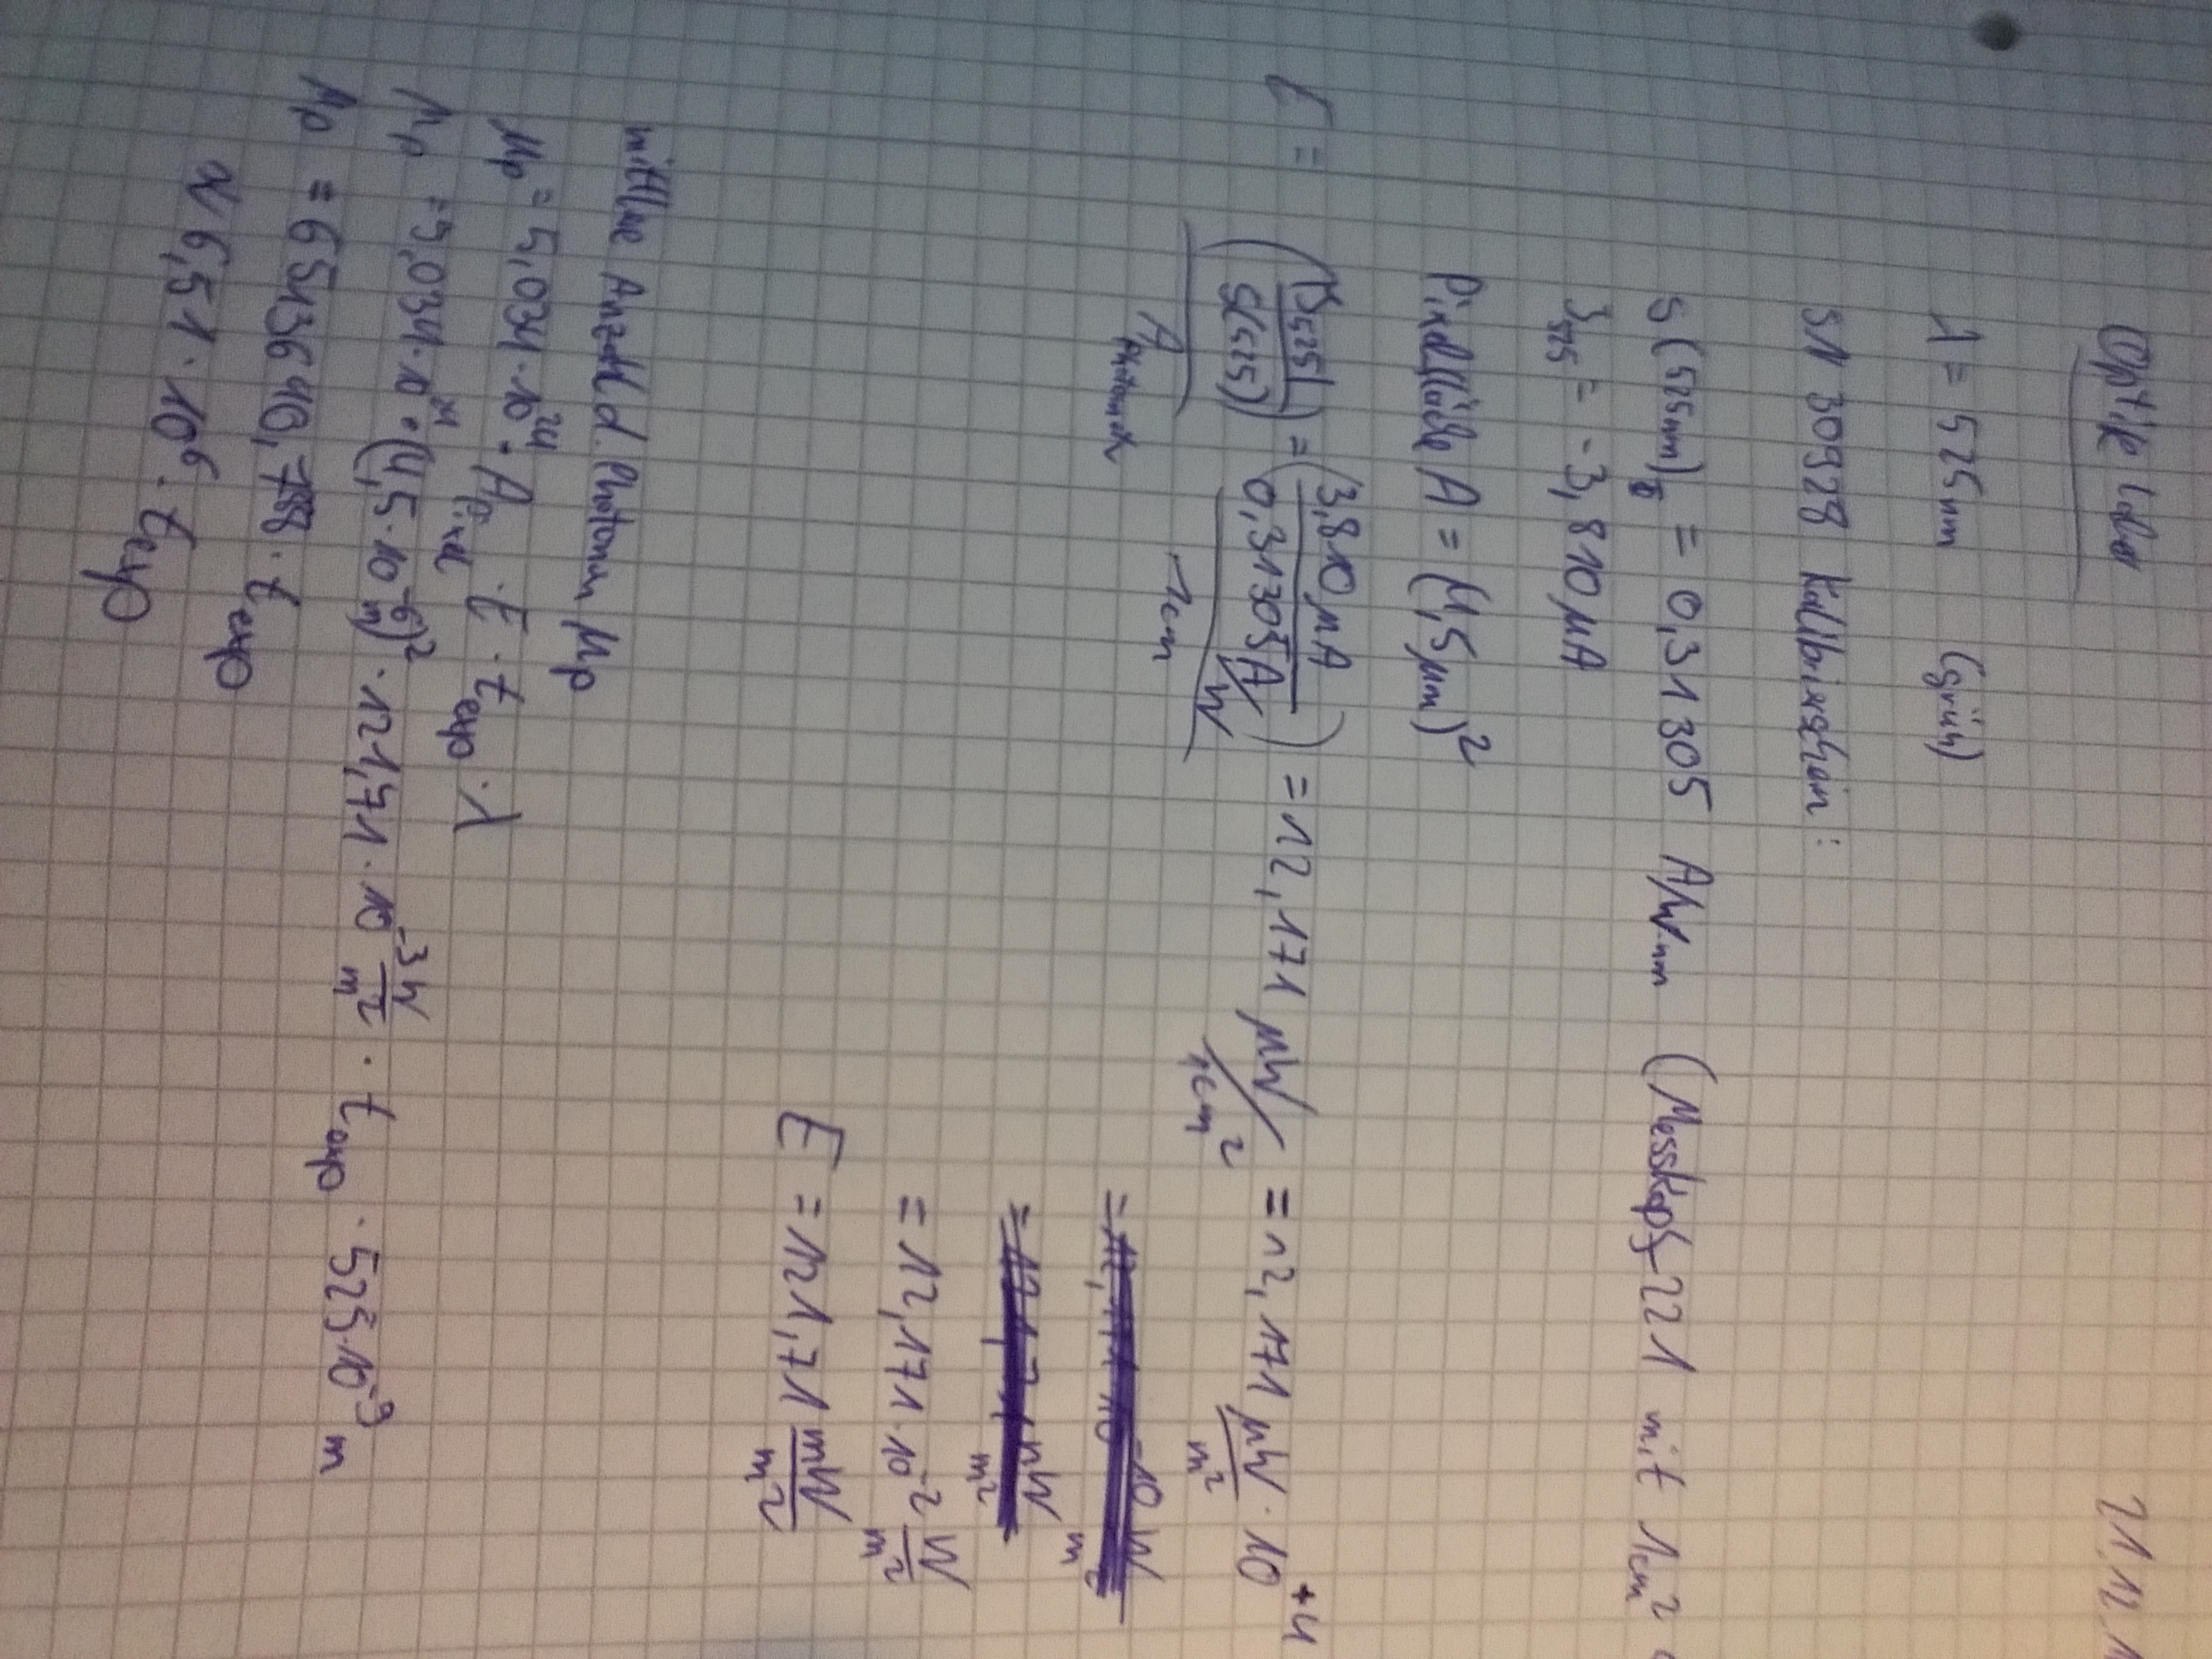 Optik Labor
21.12.1
λ = 525nm (grün)
SN 30928 Kalibrierschein:
s(525nm) = 0,31305 A/W·nm (Messkopf-221 mit 1cm²
J₅₂₅ = -3,810 µA
Pixelfläche A = (4,5µm)²
E = (|J₅₂₅| / S(525)) / A = (3,810 µA / 0,31305 A/W) / 1cm = 12,171 µW/1cm² = 12,171 µW/m² · 10⁺⁴
= 12,171·10⁻¹⁰ W/m²
= 121,71 nW/m²
= 12,171·10⁻² W/m²
E = 121,71 mW/m²
mittlere Anzahl d. Photonen µp
µp = 5,034·10²⁴ · A_Pixel · E · t_exp · λ
µp = 5,034·10²⁴ · (4,5·10⁻⁶ m)² · 121,71·10⁻³ W/m² · t_exp · 525·10⁻⁹ m
µp = 6513640,788 · t_exp
≈ 6,51·10⁶ · t_exp